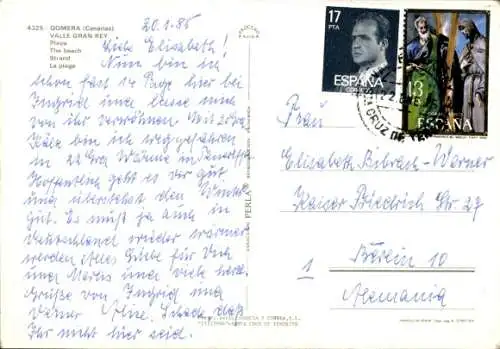 4325 GOMERA (Canarias)
VALLE GRAN REY
Playa
The beach
Strand
La plage
20.1.85
Liebe Elisabeth!
Nun bin ich
schon fast 14 Tage hier bei
Ingrid und lasse mich
von ihr verwöhnen. Mit 20°
Kälte bin ich weggefahren
in 22 Grad Wärme in
Hoffentlich geht es dir gut
und überstehst den Winter
gut. Es muß ja auch in
Deutschland wieder wärmer
werden. Alles Liebe für Dich
und und viele herzl.
Grüße von Ingrid und
Deiner Schade daß
Ihr nicht hier seid.
PERLA
17
PTA
ESPAÑA
CORREOS
13
ESPAÑA
CRUZ DE TENERIFE
Frau
Elisabeth Werner
Kaiser Friedrich Str. 27
1
Berlin 10
Alemania